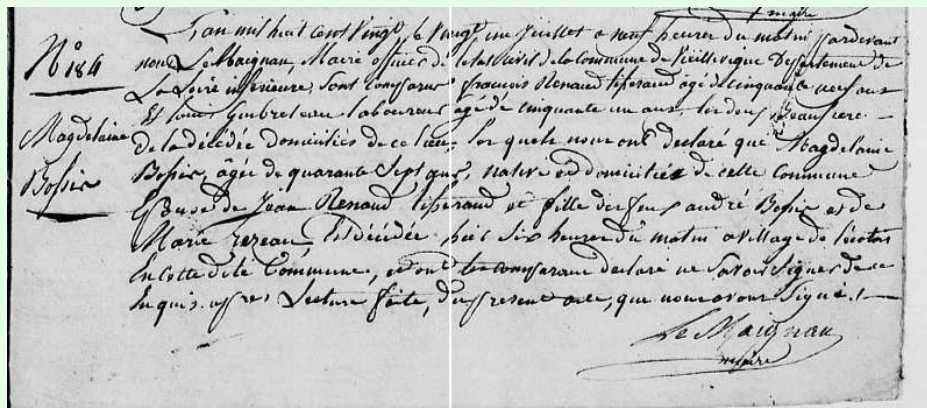 maire
L'an mil huit cent vingt, le vingt un juillet a neuf heures du matin pardevant
N° 184
nous Le Maignan, Maire officier de l'etat civil de la Commune de Vieillevigne Departement de
La Loire inferieure, Sont comparus francois Renaud tisserand agé de cinquante neuf ans
Et Louis Gembreteau laboureur agé de cinquante un ans, tos deux Beaufrere
Magdelaine
de la décédée domiciliés de ce lieu, les quels nous ont declaré que Magdelaine
Bossis
Bossis, âgée de quarante Sept ans, native et domiciliée de cette Commune
Epouse de Jean Renaud tisserand et fille de feu andré Bossis et de
Marie rezeau, Est décédée hier Six heures du matin a village de
En cette dite Commune, et ont les comparans declaré ne Savoir Signer de ce
Enquis. apres Lecture faite, du present acte, que nous avons Signé./.
Le Maignan
maire